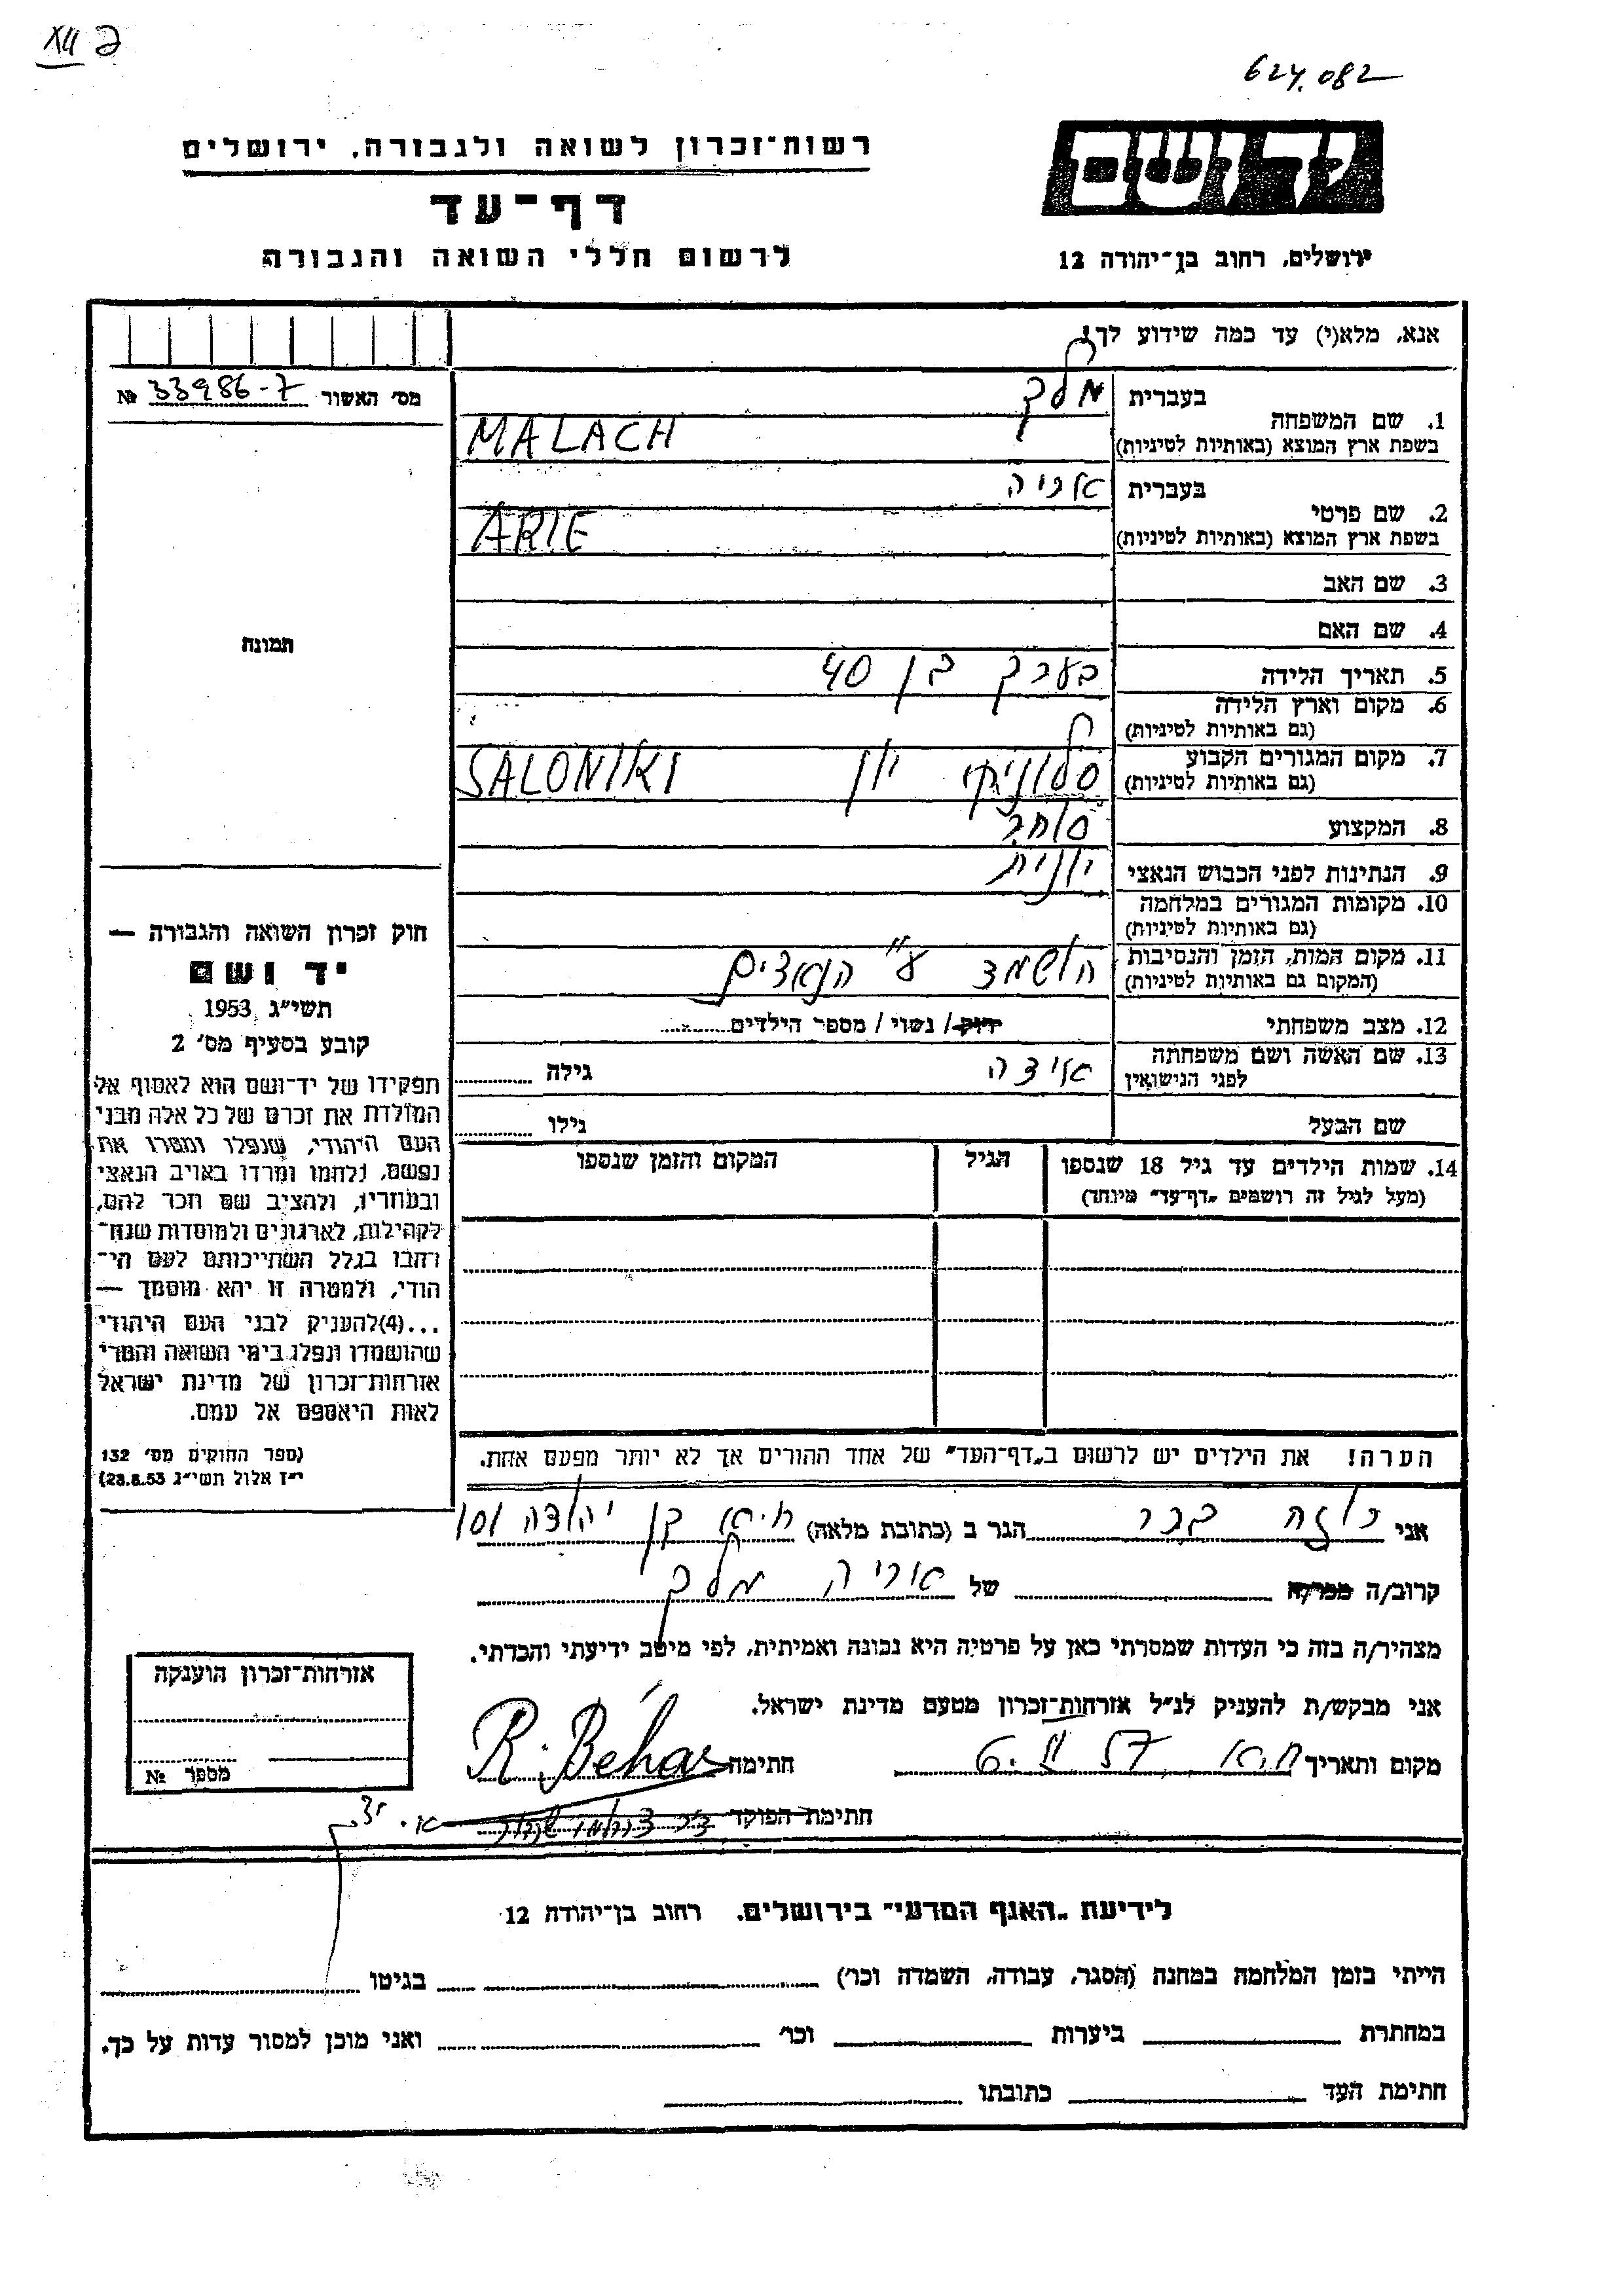 XII 2
624.082
יד ושם
ירושלים, רחוב בן־יהודה 12
רשות־זכרון לשואה ולגבורה, ירושלים
דף־עד
לרשום חללי השואה והגבורה
אנא, מלא(י) עד כמה שידוע לך!
מס' האשור № 33986-7
תמונה
1. שם המשפחה
בעברית מלך
בשפת ארץ המוצא (באותיות לטיניות) MALACH
2. שם פרטי
בעברית אריה
בשפת ארץ המוצא (באותיות לטיניות) ARIE
3. שם האב
4. שם האם
5. תאריך הלידה בערך בן 40
6. מקום וארץ הלידה
(גם באותיות לטיניות)
7. מקום המגורים הקבוע סלוניקי יון SALONIKI
(גם באותיות לטיניות)
8. המקצוע סוחר
9. הנתינות לפני הכבוש הנאצי יונית
10. מקומות המגורים במלחמה
(גם באותיות לטיניות)
11. מקום המות, הזמן והנסיבות הושמד ע"י הנאצים
(המקום גם באותיות לטיניות)
12. מצב משפחתי רווק / נשוי / מספר הילדים
13. שם האשה ושם משפחתה אידה גילה
לפני הנישואין
שם הבעל גילו
14. שמות הילדים עד גיל 18 שנספו הגיל המקום והזמן שנספו
(מעל לגיל זה רושמים „דף־עד" מיוחד)
הערה! את הילדים יש לרשום ב„דף־העד" של אחד ההורים אך לא יותר מפעם אחת.
חוק זכרון השואה והגבורה —
יד ושם
תשי"ג 1953
קובע בסעיף מס' 2
תפקידו של יד־ושם הוא לאסוף אל
המולדת את זכרם של כל אלה מבני
העם היהודי, שנפלו ומסרו את
נפשם, נלחמו ומרדו באויב הנאצי
ובעוזריו, ולהציב שם וזכר להם,
לקהילות, לארגונים ולמוסדות שנח־
רבו בגלל השתייכותם לעם הי־
הודי, ולמטרה זו יהא מוסמך —
...(4)להעניק לבני העם היהודי
שהושמדו ונפלו בימי השואה והמרי
אזרחות־זכרון של מדינת ישראל
לאות היאספם אל עמם.
(ספר החוקים מס' 132
י"ז אלול תשי"ג 28.8.53)
אני רוזה בכר הגר ב (כתובת מלאה) חיפה בן יהודה 101
קרוב/ה מכר/ה של אריה מלך
מצהיר/ה בזה כי העדות שמסרתי כאן על פרטיה היא נכונה ואמיתית, לפי מיטב ידיעתי והכרתי.
אני מבקש/ת להעניק לנ"ל אזרחות־זכרון מטעם מדינת ישראל.
מקום ותאריך חיפה 6. II 57 חתימה R. Béhar
חתימת הפוקד
אזרחות־זכרון הוענקה
מספר №
לידיעת „האגף המדעי" בירושלים. רחוב בן־יהודה 12
הייתי בזמן המלחמה במחנה (הסגר, עבודה, השמדה וכו') בגיטו
במחתרת ביערות וכו' ואני מוכן למסור עדות על כך.
חתימת העד כתובתו